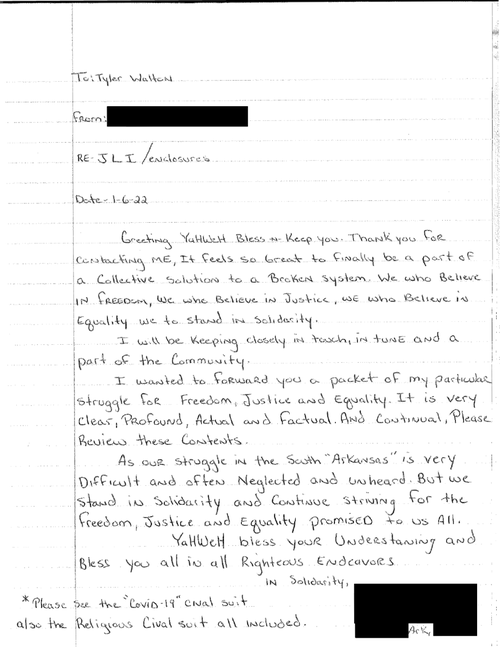 To: Tyler Walton
From:
RE- JLI/enclosures
Date- 1-6-22
Greeting YaHWeH Bless n Keep you. Thank you for
contacting ME, It feels so Great to finally be a part of
a Collective Solution to a Broken System. We who Believe
IN FREEDOM, We who Believe in Justice, WE who Believe in
Equality we to stand in Solidarity.
I will be Keeping closely in touch, in tune and a
part of the Community.
I wanted to forward you a packet of my particular
struggle for Freedom, Justice and Equality. It is very
Clear, Profound, Actual and Factual. And Continual, Please
Review these Contents.
As our struggle in the South "Arkansas" is very
Difficult and often Neglected and unheard. But we
Stand in Solidarity and Continue Striving for the
freedom, Justice and Equality promised to us All.
YaHWeH bless your Understaning and
Bless you all in all Righteous Endeavors
in Solidarity,
*Please see the "Covid-19" cival suit
also the Religious Cival suit all included.
Ark,